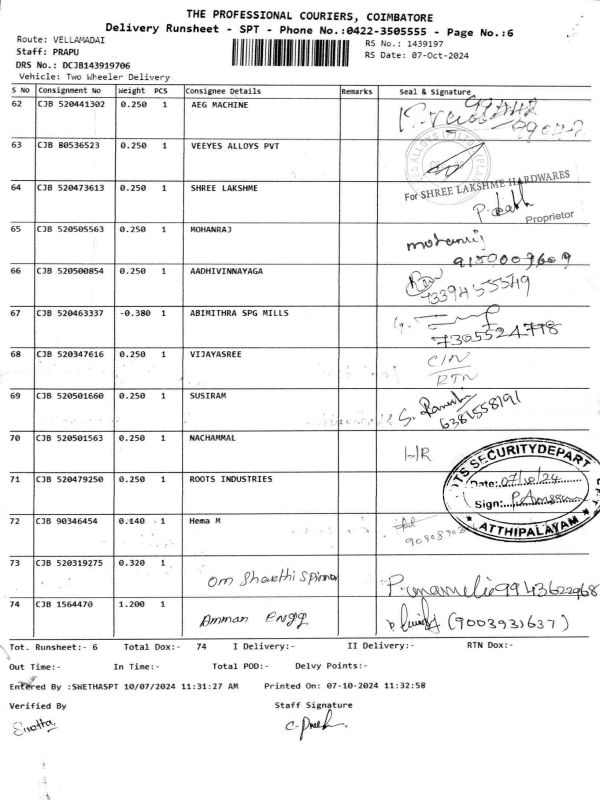 THE PROFESSIONAL COURIERS, COIMBATORE
Delivery Runsheet - SPT - Phone No.:0422-3505555 - Page No.:6
Route: VELLAMADAI
RS No.: 1439197
Staff: PRAPU
RS Date: 07-Oct-2024
DRS No.: DCJB143919706
Vehicle: Two Wheeler Delivery
S No Consignment No Weight PCS Consignee Details Remarks Seal & Signature
62 CJB 520441302 0.250 1 AEG MACHINE
63 CJB 80536523 0.250 1 VEEYES ALLOYS PVT
64 CJB 520473613 0.250 1 SHREE LAKSHME
For SHREE LAKSHME HARDWARES
Proprietor
65 CJB 520505563 0.250 1 MOHANRAJ
mohanraj
9150009609
66 CJB 520500854 0.250 1 AADHIVINNAYAGA
67 CJB 520463337 -0.380 1 ABIMITHRA SPG MILLS
7305524778
68 CJB 520347616 0.250 1 VIJAYASREE
C/N
RTN
69 CJB 520501660 0.250 1 SUSIRAM
6381558191
70 CJB 520501563 0.250 1 NACHAMMAL
71 CJB 520479250 0.250 1 ROOTS INDUSTRIES
SECURITY DEPART
Date: 07/10/24
Sign:
ATTHIPALAYAM
72 CJB 90346454 0.140 1 Hema M
73 CJB 520319275 0.320 1
9943622968
74 CJB 1564470 1.200 1 Amman Engg
(9003931637)
Tot. Runsheet:- 6 Total Dox:- 74 I Delivery:- II Delivery:- RTN Dox:-
Out Time:- In Time:- Total POD:- Delvy Points:-
Entered By :SWETHASPT 10/07/2024 11:31:27 AM Printed On: 07-10-2024 11:32:58
Verified By Staff Signature